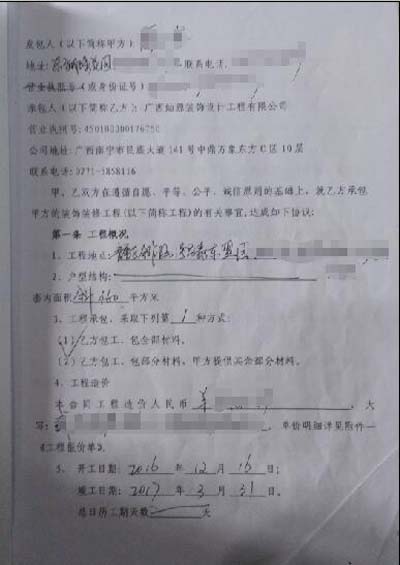 发包人（以下简称甲方）
地址： 联系电话：
营业执照号（或身份证号）
承包人（以下简称乙方）：广西灿源装饰设计工程有限公司
营业执照号：450103300176750
公司地址：广西南宁市民族大道141号中鼎万象东方C区10层
联系电话：0771-5858116
甲、乙双方在遵循自愿、平等、公平、诚信原则的基础上，就乙方承包
甲方的装饰装修工程（以下简称工程）的有关事宜，达成如下协议：
第一条 工程概况
1、工程地点：
2、户型结构：
套内面积 平方米
3、工程承包，采取下列第 1 种方式：
（1）乙方包工、包全部材料。
（2）乙方包工、包部分材料，甲方提供其余部分材料。
4、工程造价
本合同工程造价人民币 大
写： ，单价明细详见附件一
《工程报价单》。
5、开工日期：2016 年 12 月 16 日；
竣工日期：2017 年 3 月 31 日。
总日历工期天数 天